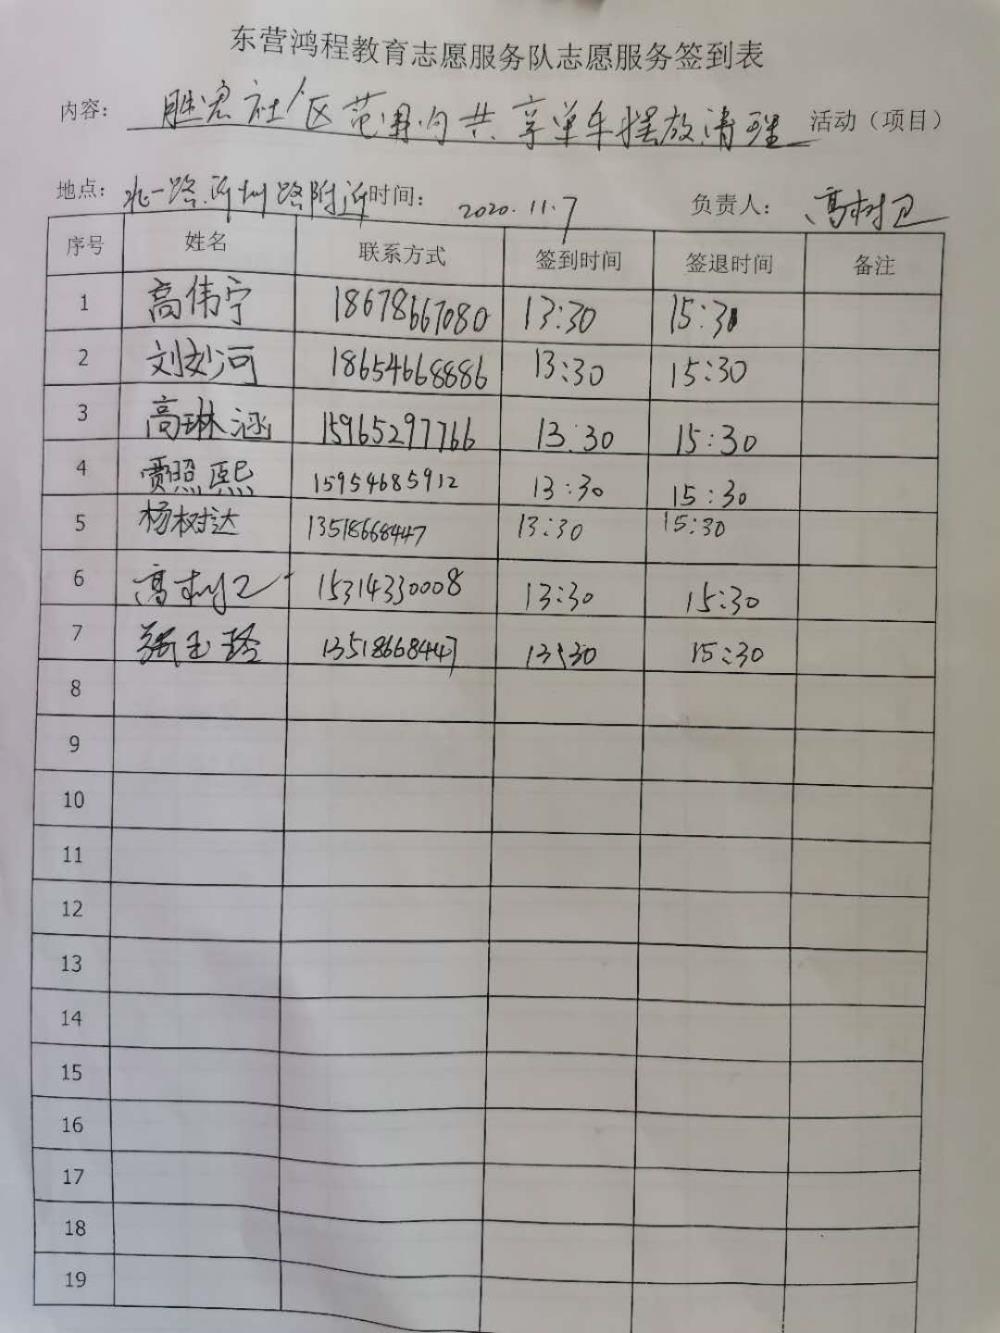 东营鸿程教育志愿服务队志愿服务签到表
内容: 胜宏社区范围内共享单车摆放清理 活动（项目）
地点: 北一路 附近 时间: 2020.11.7 负责人: 高树卫
序号 姓名 联系方式 签到时间 签退时间 备注
1 高伟宁 18678667080 13:30 15:30
2 刘妙河 18654668886 13:30 15:30
3 高琳涵 15965297766 13:30 15:30
4 贾照熙 15954685912 13:30 15:30
5 杨树达 13518668447 13:30 15:30
6 高树卫 15314330008 13:30 15:30
7 张玉 13518668447 13:30 15:30
8
9
10
11
12
13
14
15
16
17
18
19